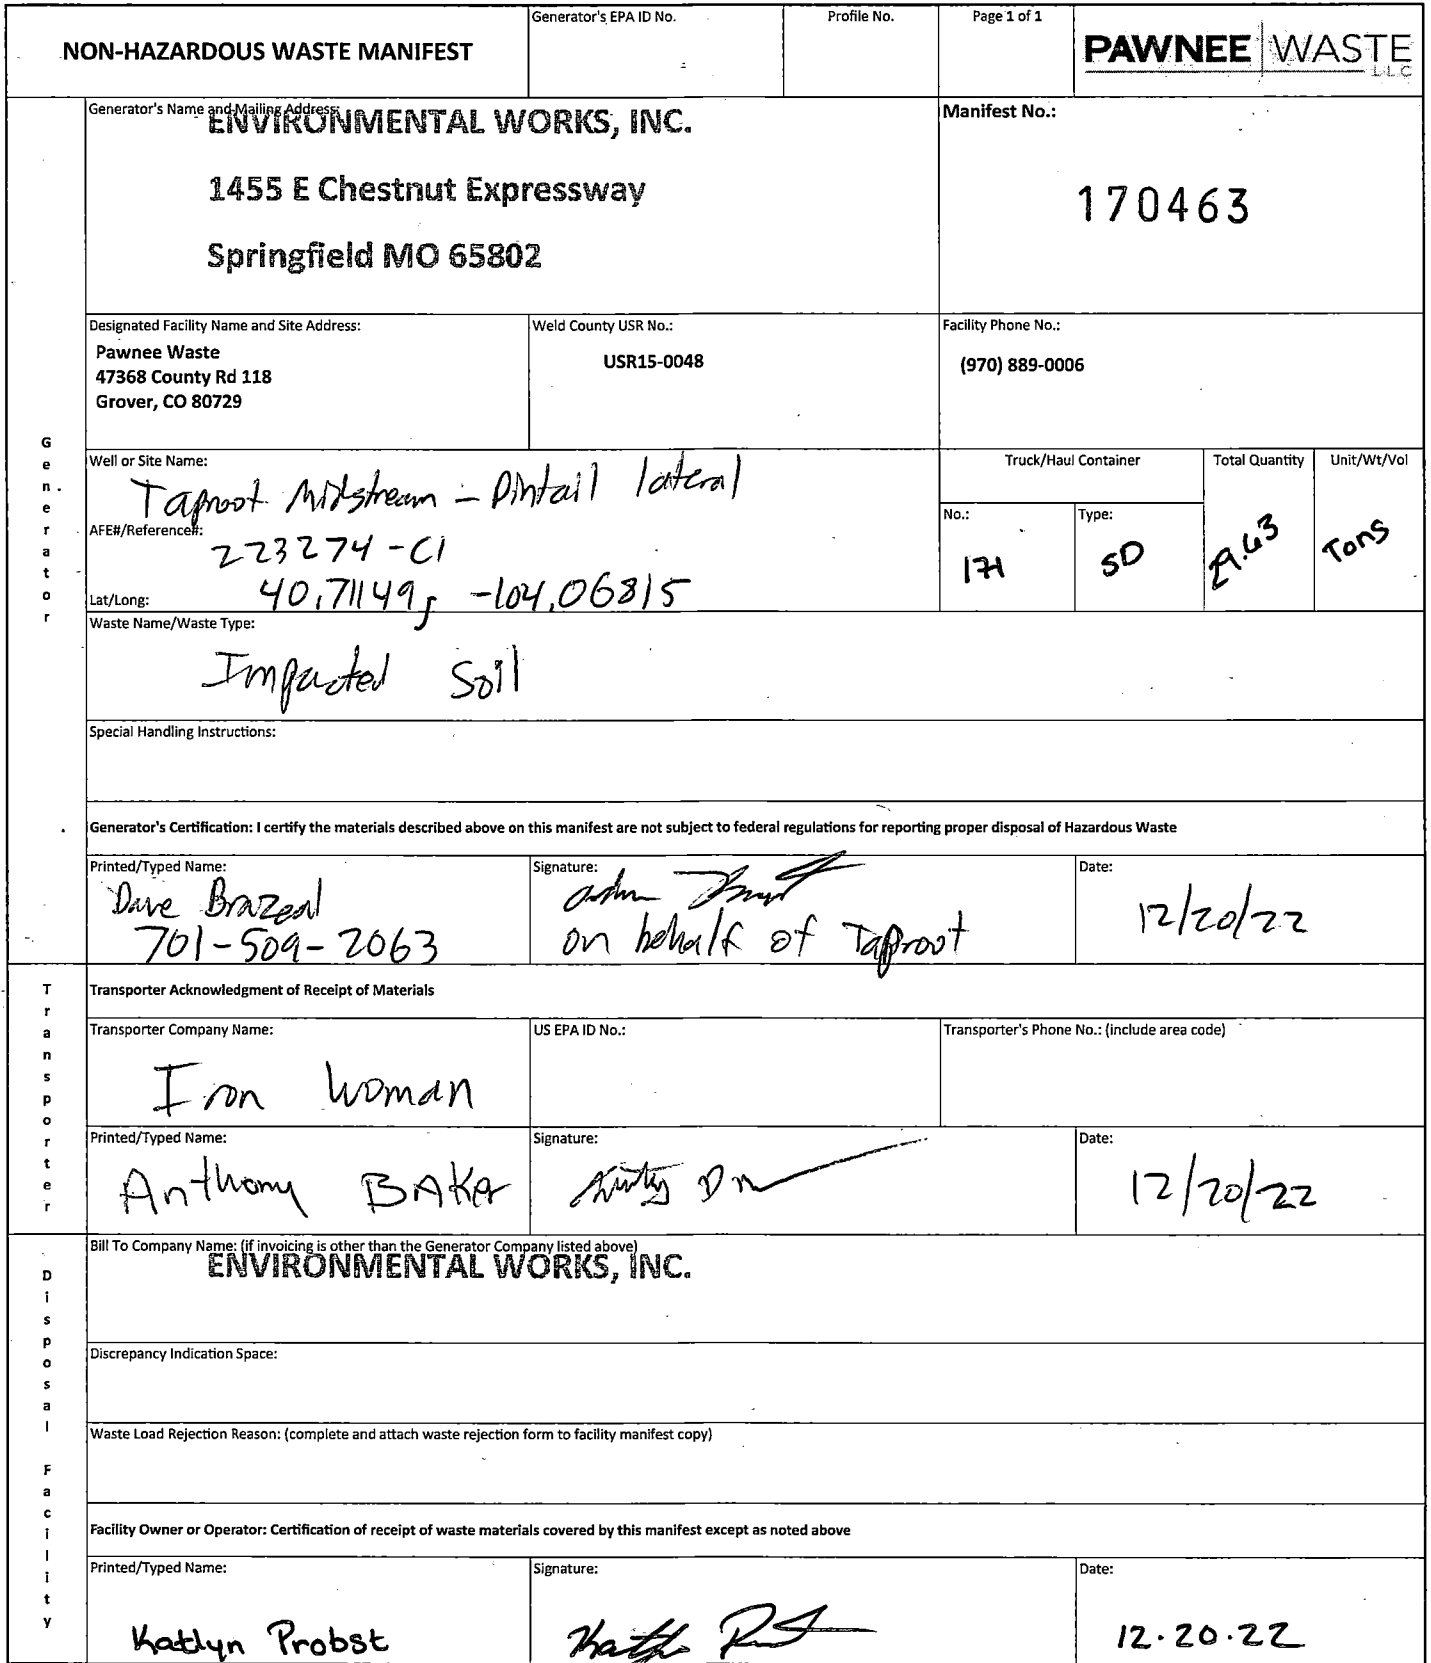 NON-HAZARDOUS WASTE MANIFEST
Generator's EPA ID No.
Profile No.
Page 1 of 1
PAWNEE WASTE
LLC
Generator
Generator's Name and Mailing Address:
ENVIRONMENTAL WORKS, INC.
1455 E Chestnut Expressway
Springfield MO 65802
Manifest No.:
170463
Designated Facility Name and Site Address:
Pawnee Waste
47368 County Rd 118
Grover, CO 80729
Weld County USR No.:
USR15-0048
Facility Phone No.:
(970) 889-0006
Well or Site Name:
Taproot Midstream - Pintail lateral
AFE#/Reference#:
223274-C1
Lat/Long:
40.71149, -104.06815
Truck/Haul Container
No.:
171
Type:
SD
Total Quantity
29.63
Unit/Wt/Vol
Tons
Waste Name/Waste Type:
Impacted Soil
Special Handling Instructions:
Generator's Certification: I certify the materials described above on this manifest are not subject to federal regulations for reporting proper disposal of Hazardous Waste
Printed/Typed Name:
Dave Brazeal
701-509-2063
Signature:
on behalf of Taproot
Date:
12/20/22
Transporter
Transporter Acknowledgment of Receipt of Materials
Transporter Company Name:
Iron Woman
US EPA ID No.:
Transporter's Phone No.: (include area code)
Printed/Typed Name:
Anthony BAKer
Signature:
Date:
12/20/22
Disposal Facility
Bill To Company Name: (if invoicing is other than the Generator Company listed above)
ENVIRONMENTAL WORKS, INC.
Discrepancy Indication Space:
Waste Load Rejection Reason: (complete and attach waste rejection form to facility manifest copy)
Facility Owner or Operator: Certification of receipt of waste materials covered by this manifest except as noted above
Printed/Typed Name:
Katlyn Probst
Signature:
Date:
12.20.22